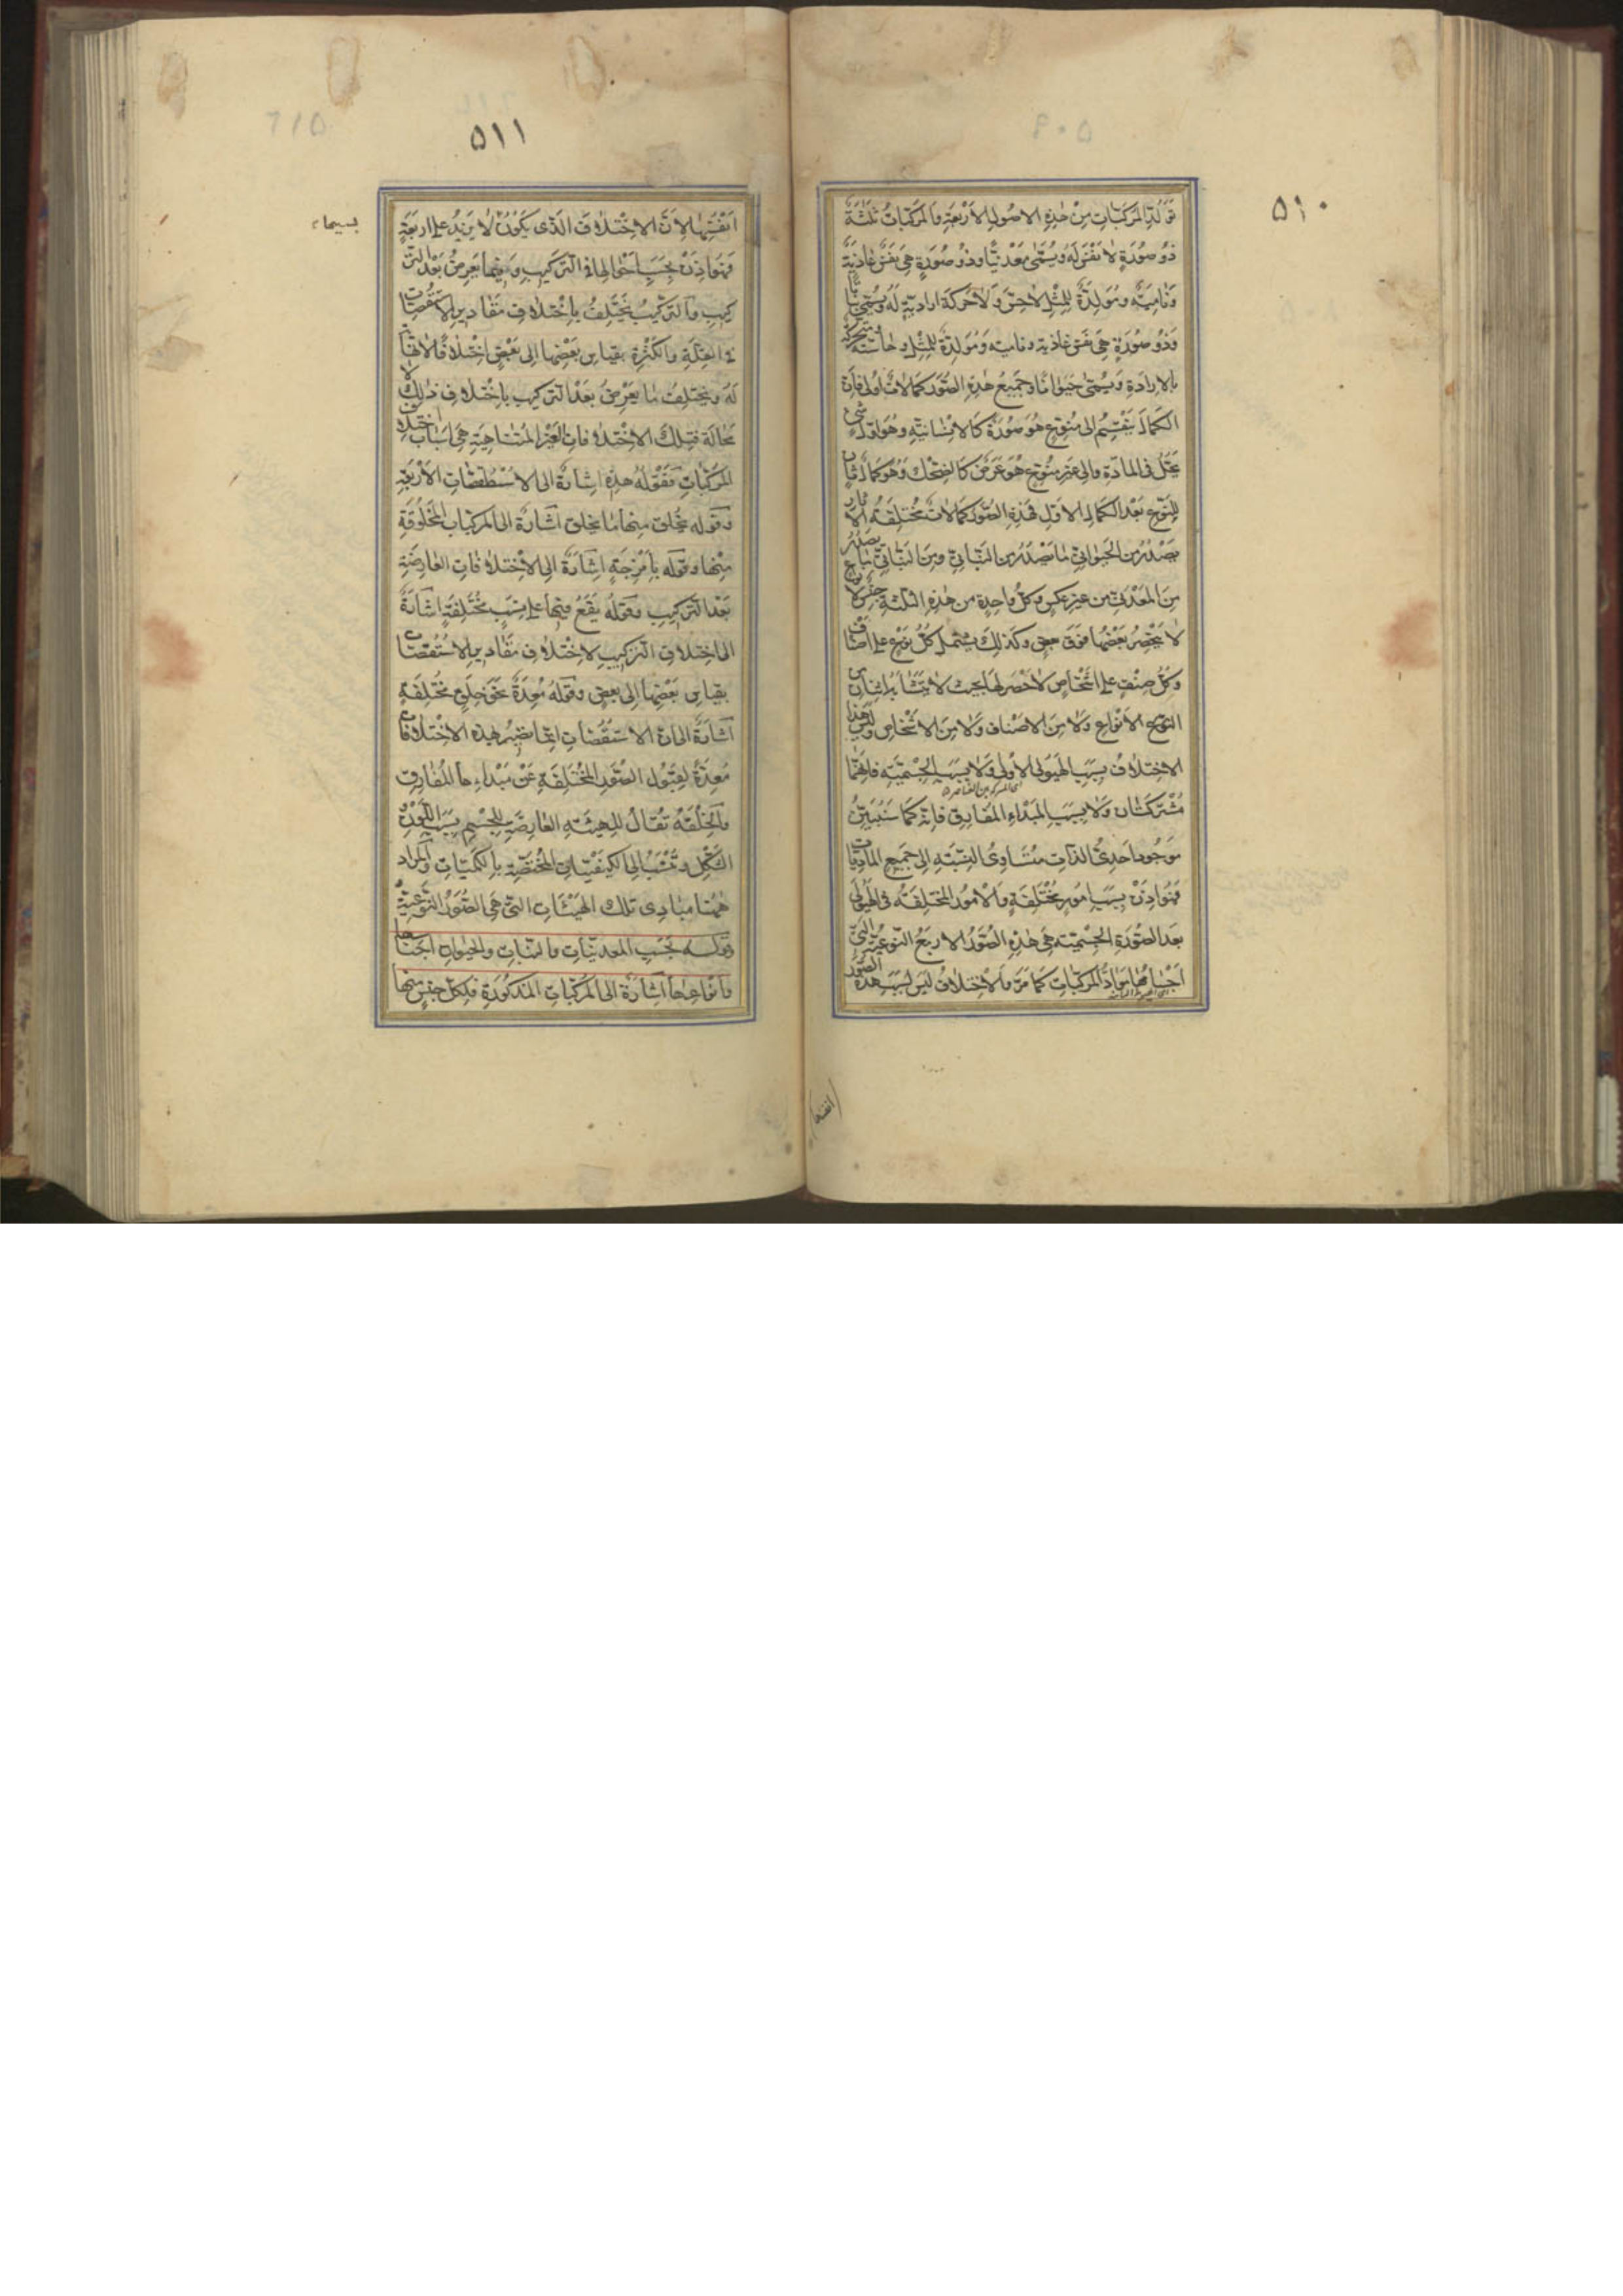 ٥١٠
تولد المركبات من هذه الاصول الاربعة والمركبات ثلثة
ذو صورة لا نفس له ويسمى معدنيا وذو صورة هى نفس غاذية
ونامية ومولدة للمثل لا حس ولا حركة ارادية له ويسمى نباتا
وذو صورة هى نفس غاذية ونامية ومولدة للمثل وحاسة ومتحركة
بالارادة ويسمى حيوانا وجميع هذه الصور كمالات اولى فان
الكمال ينقسم الى منوع هو صورة كالانسانية وهو اول شئ
يحل فى المادة والى غير منوع هو عرض كالضحك وهو كمال ثان
للنوع بعد الكمال الاول فهذه الصور كمالات مختلفة الآثار
يصدر من الحيوانى ما يصدر من النباتى ومن النباتى ما يصدر
من المعدنى من غير عكس وكل واحدة من هذه الثلثة جنس لانواع
لا ينحصر بعضها فوق بعض وكذلك يشتمل كل نوع على اصناف
وكل صنف على اشخاص لا حصر لها بحيث لا يتشابه اثنان من
الانواع ولا من الاصناف ولا من الاشخاص وليس هذا
الاختلاف بسبب الهيولى الاولى ولا بسبب الجسمية فانهما
مشتركتان ولا بسبب المبداء المفارق فانه كما سنبين
موجود احدى الذات متساوى النسبة الى جميع الماديات
فهو اذن بسبب امور مختلفة والامور المختلفة فى الهيولى
بعد الصورة الجسمية هى هذه الصور الاربع النوعية التى
اجسامها مواد المركبات كما مر والاختلاف ليس بسبب هذه الصور
انفسها
٥١١
انفسها لان الاختلاف الذى يكون لا يزيد على اربعة
فهو اذن بحسب احوالها فى التركيب وفيما يعرض بعد التر
كيب والتركيب يختلف باختلاف مقادير الاستقصات
فى القلة والكثرة بقياس بعضها الى بعض اختلافا لا نهاية
له ويختلف ما يعرض بعد التركيب باختلاف ذلك لا
محالة فتلك الاختلافات الغير المتناهية هى اسباب اختلاف
المركبات فقوله هذه اشارة الى الاسطقصات الاربعة
وقوله يخلق منها ما يخلق اشارة الى المركبات المخلوقة
منها وقوله بامزجة اشارة الى الاختلافات العارضة
بعد التركيب وقوله يقع فيها على نسب مختلفة اشارة
الى اختلاف التركيب لاختلاف مقادير الاستقصات
بقياس بعضها الى بعض وقوله معدة نحو خلق مختلفة
اشارة الى ان الاستقصات انما تصير بهذه الاختلافات
معدة لقبول الصور المختلفة عن مبداءها المفارق
والخلقة تقال للهيئة العارضة للجسم بسبب اللون و
الشكل وتنسب الى الكيفيات المختصة بالكميات والمراد
ههنا مبادى تلك الهيئات التى هى الصور النوعية
قوله بحسب المعدنيات والنبات والحيوان اجناسها
وانواعها اشارة الى المركبات المذكورة فلكل جنس منها